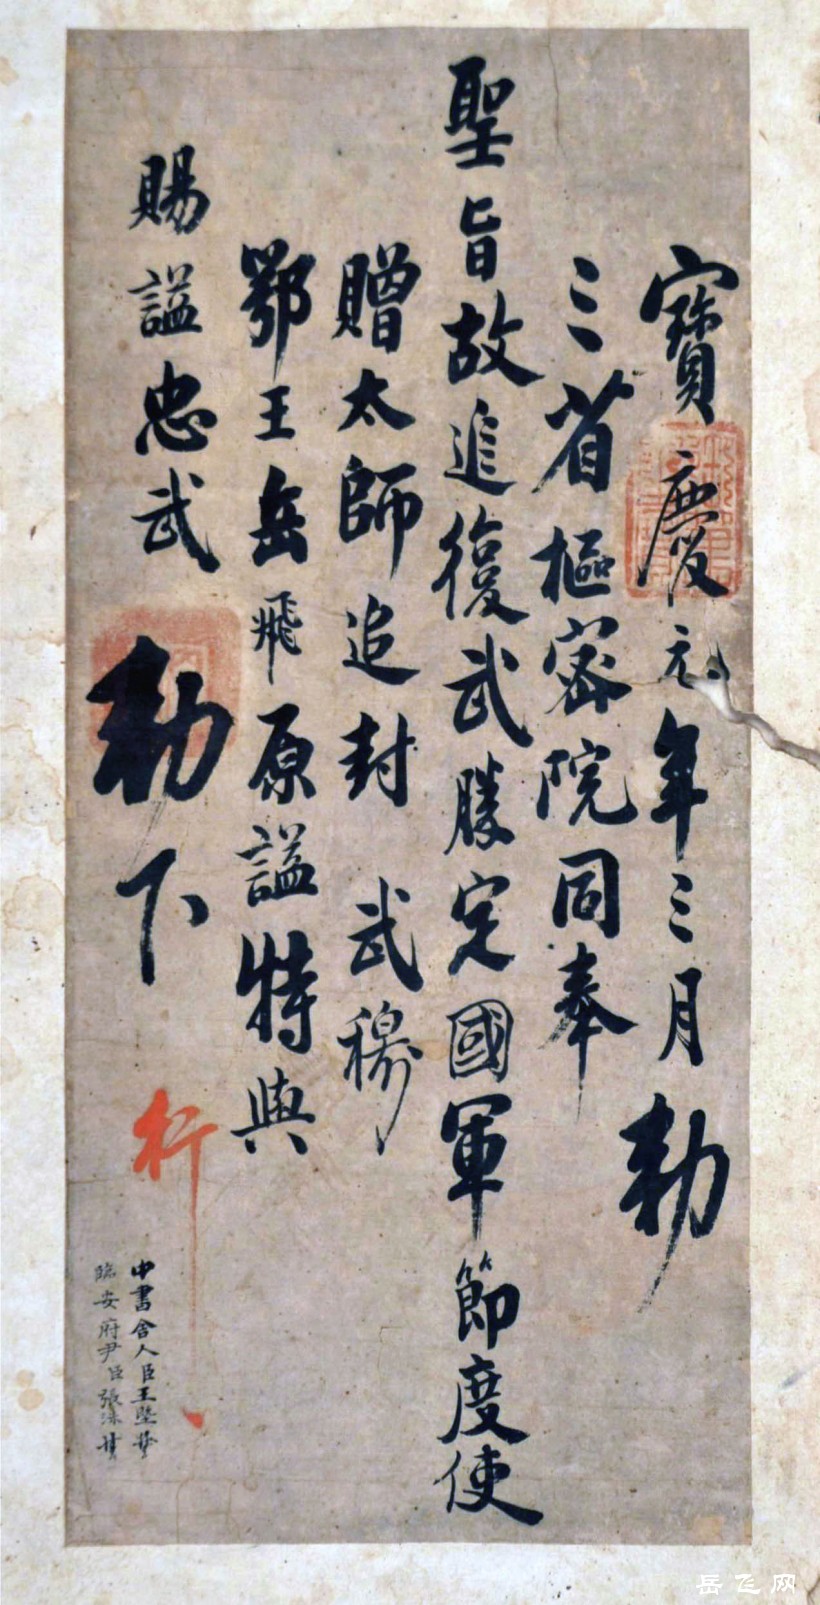 寶慶元年三月勅
三省樞密院同奉
聖旨故追復武勝定國軍節度使
贈太師追封 武穆
鄂王岳飛原謚特與
賜謚忠武 勅下
行
中書舍人臣王塈
臨安府尹臣張
岳飞网